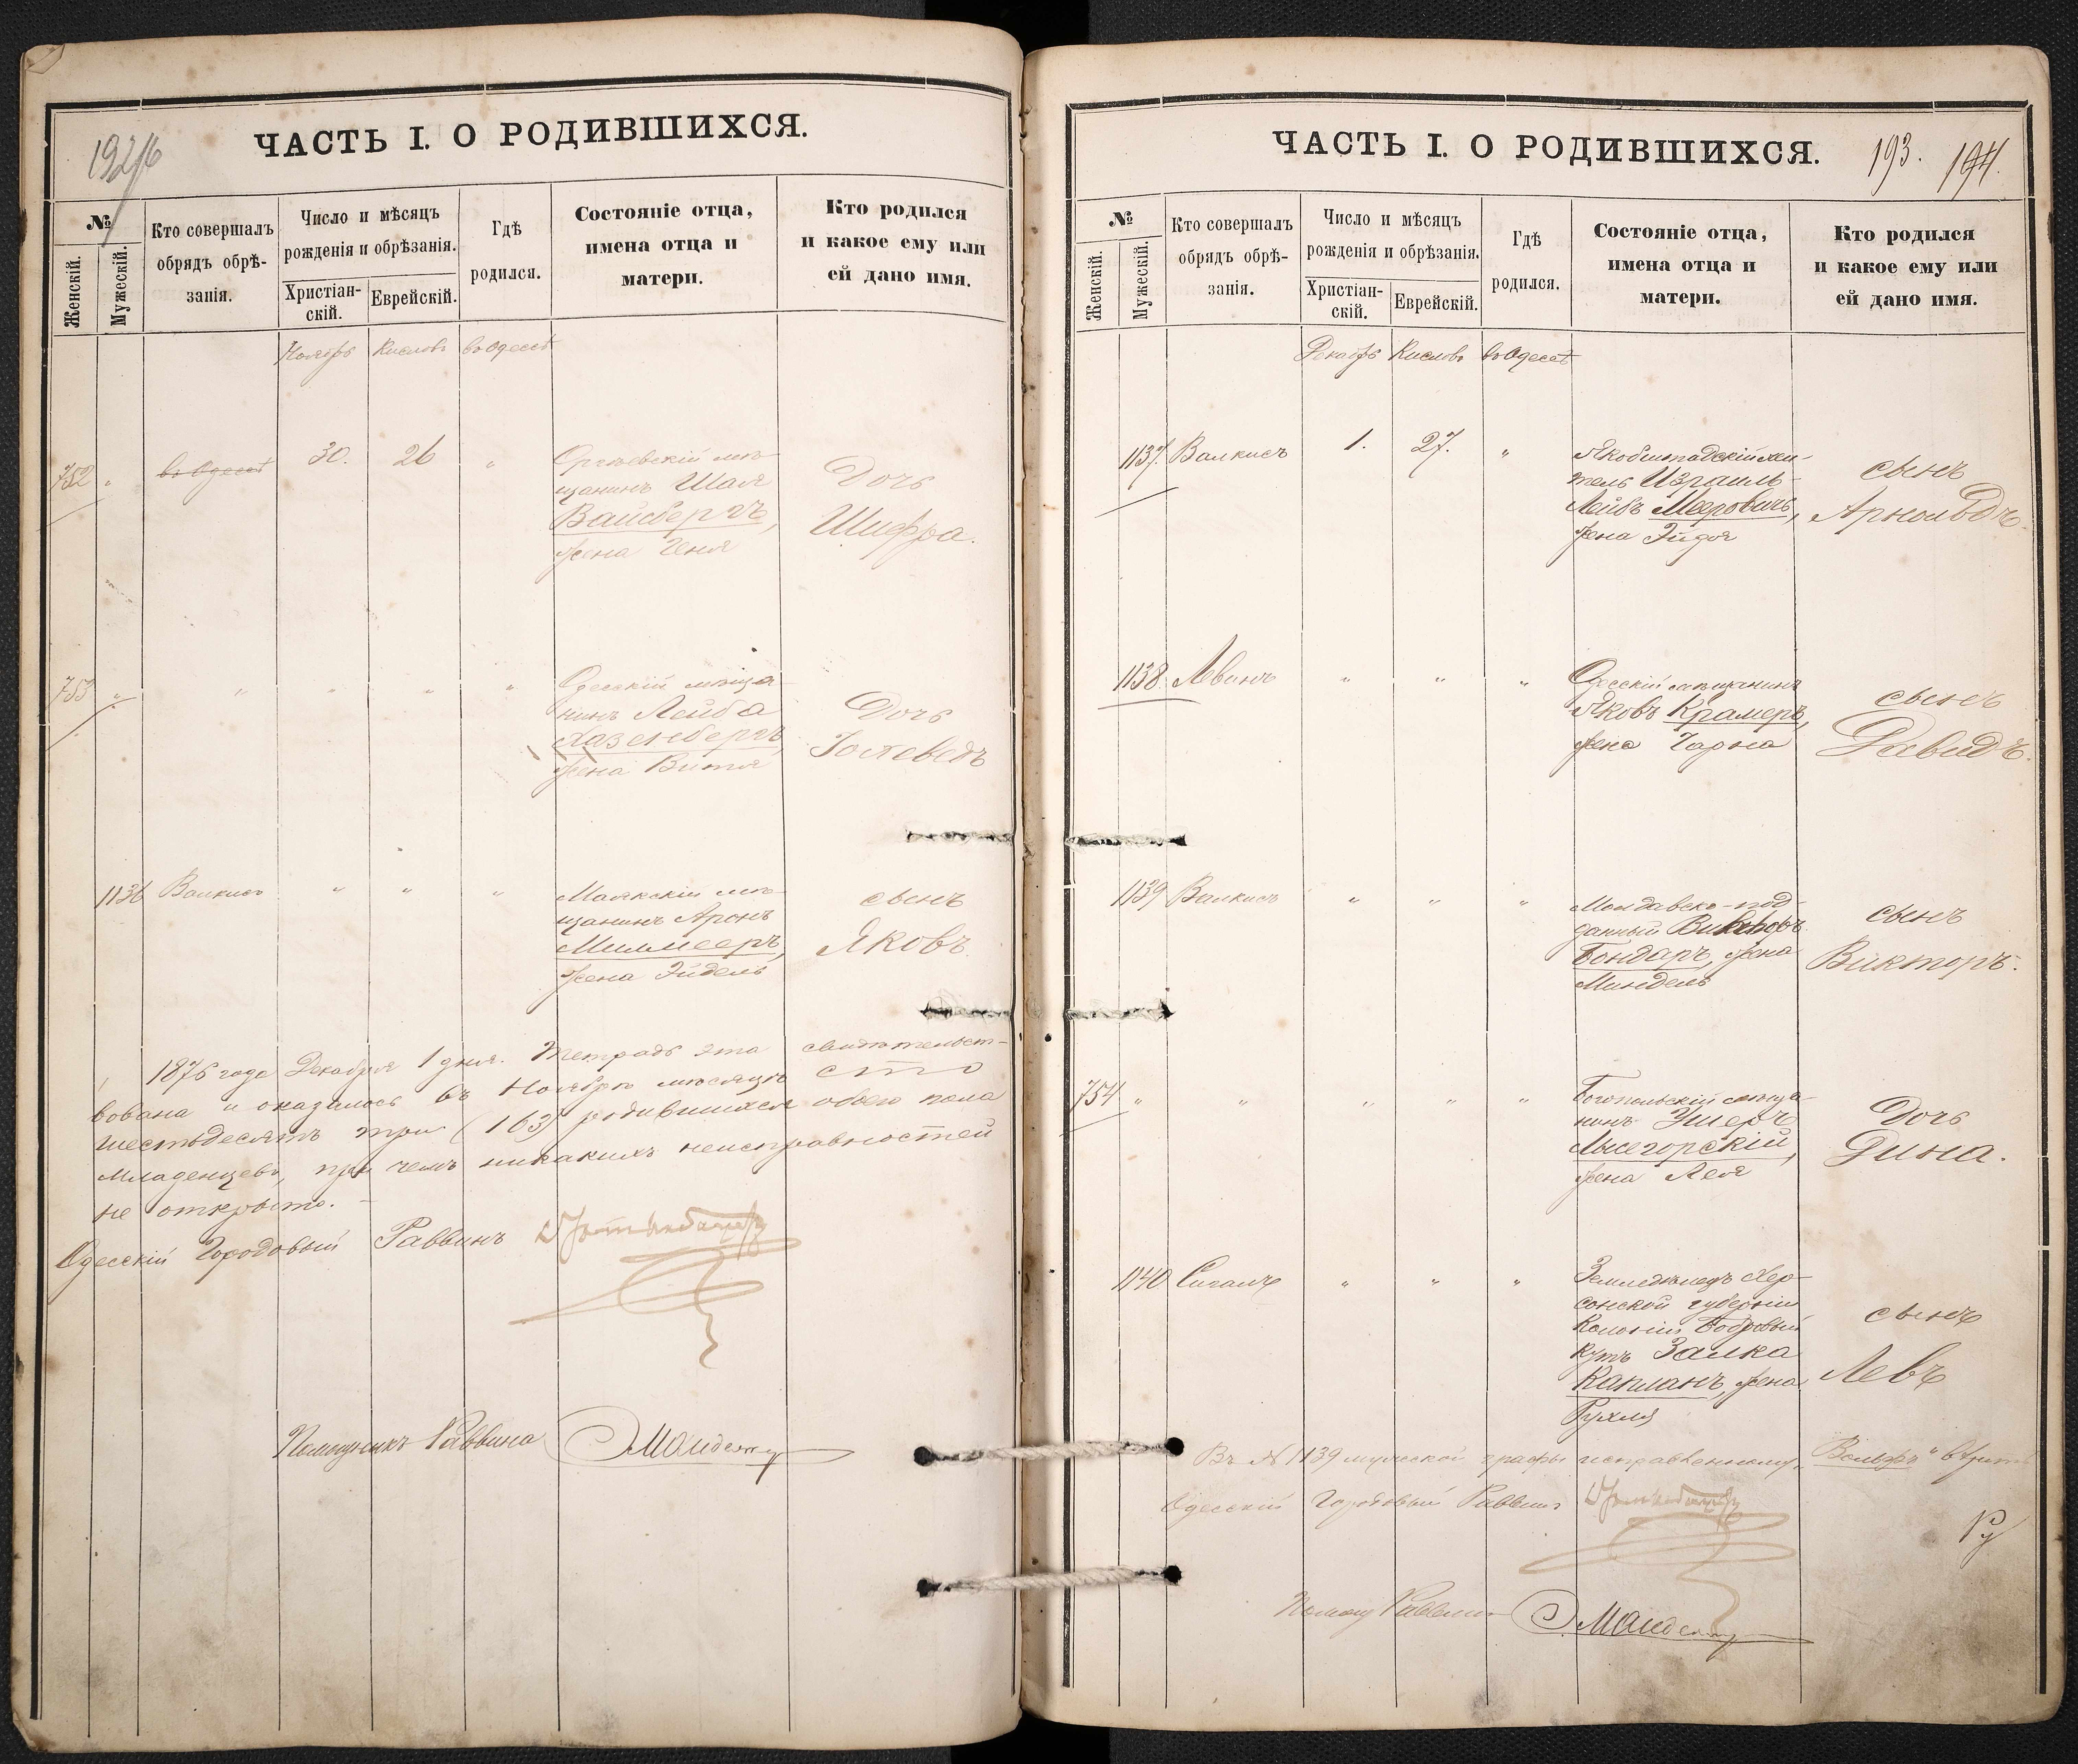 ЧАСТЬ I. О РОДИВШИХСЯ.
№
Женскій.
Мужескій.
Кто совершалъ
обрядъ обрѣ-
занія.
Число и мѣсяцъ
рожденія и обрѣзанія.
Христіан-
скій.
Еврейскій.
Гдѣ
родился.
Состояніе отца,
имена отца и
матери.
Кто родился
и какое ему или
ей дано имя.
Ноябрь Кислевъ въ Одессѣ
752 " въ Одессѣ 30. 26 "
Оргѣевскій мѣ-
щанинъ Шая
Вайсбергъ,
жена Геня
Дочь
Шифра.
753 " " " " "
Одесскій мѣща-
нинъ Лейба
Хазенбергъ,
жена Витя
Дочь
Іохеведъ
1136 Валкисъ " " "
Маякскій мѣ-
щанинъ Аронъ
жена Эйдель
сынъ
Яковъ.
1876 года Декабря 1 дня. Тетрадь эта свидѣтельст-
вована и оказалось въ Ноябрѣ мѣсяцѣ сто
шестьдесятъ три (163) родившихся обоего пола
младенцевъ, при чемъ никакихъ неисправностей
не открыто. -
Одесскій Городовый Раввинъ
Помощникъ Раввина
ЧАСТЬ I. О РОДИВШИХСЯ.
193. 194.
№
Женскій.
Мужескій.
Кто совершалъ
обрядъ обрѣ-
занія.
Число и мѣсяцъ
рожденія и обрѣзанія.
Христіан-
скій.
Еврейскій.
Гдѣ
родился.
Состояніе отца,
имена отца и
матери.
Кто родился
и какое ему или
ей дано имя.
Декабрь Кислевъ въ Одессѣ
1137. Валкисъ 1. 27. "
Якобштадскій жи-
тель Израиль-
Лейбъ Мееровичъ,
жена Эйдля
сынъ
Арнольдъ.
1138 Левинъ " " "
Одесскій мѣщанинъ
Яковъ Крамеръ,
жена Чарна
сынъ
Давидъ.
1139 Валкисъ " " "
Молдавско-под-
данный
Бондаръ, жена
Миндель
сынъ
Викторъ.
754 " " " " "
Богопольскій мѣща-
нинъ Ушеръ
Лысегорскій,
жена Лея
Дочь
Дина.
1140 Сигалъ " " "
Земледѣлецъ Хер-
сонской губерніи
Колоніи Бобровый
Кутъ Залка
Капланъ, жена
Рухля
сынъ
Левъ
Въ № 1139 мужеской графы исправленному „Вольфъ“ вѣрить
Одесскій Городовый Раввинъ
Помощ Раввина